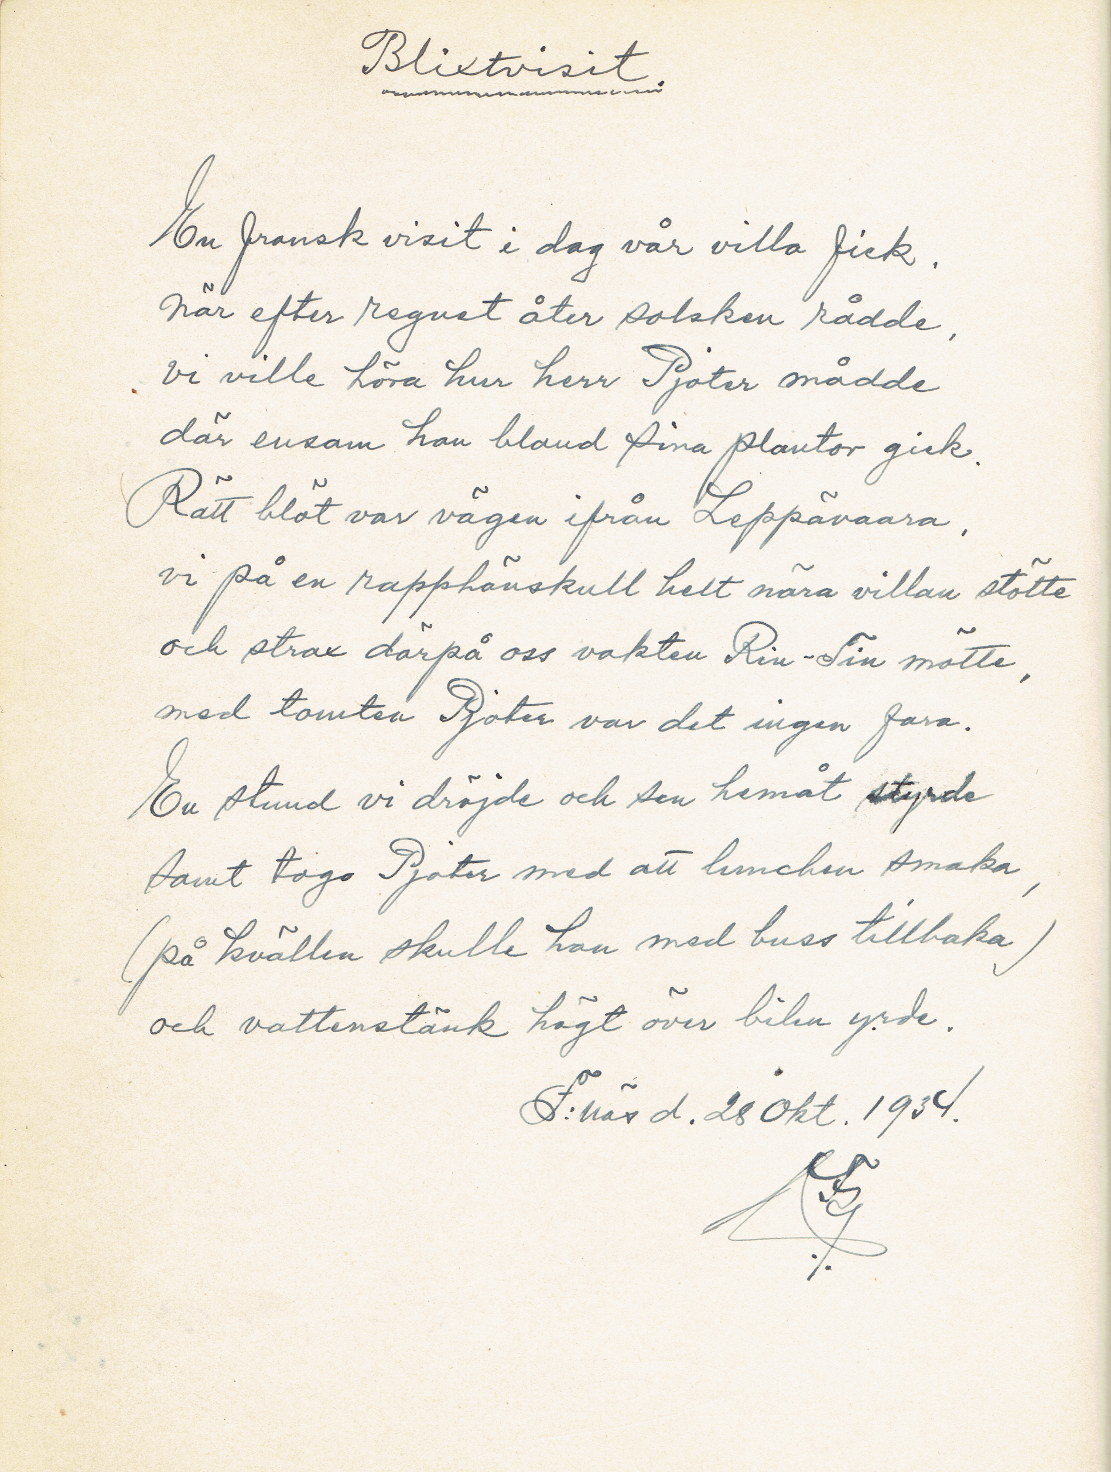 Blixtvisit.
En fransk visit i dag vår villa fick.
när efter regnet åter solsken rådde,
vi ville höra hur herr Pjoter mådde
där ensam han bland sina plantor gick.
Rätt blöt var vägen ifrån Leppävaara,
vi på en rapphönskull helt nära villan stötte
och strax därpå oss vakten Rin-Tin mötte,
med tomten Pjoter var det ingen fara.
En stund vi dröjde och sen hemåt styrde
samt togo Pjoter med att lunchen smaka,
(på kvällen skulle han med buss tillbaka)
och vattenstänk högt över bilen yrde.
F:näs d. 28 Okt. 1934.